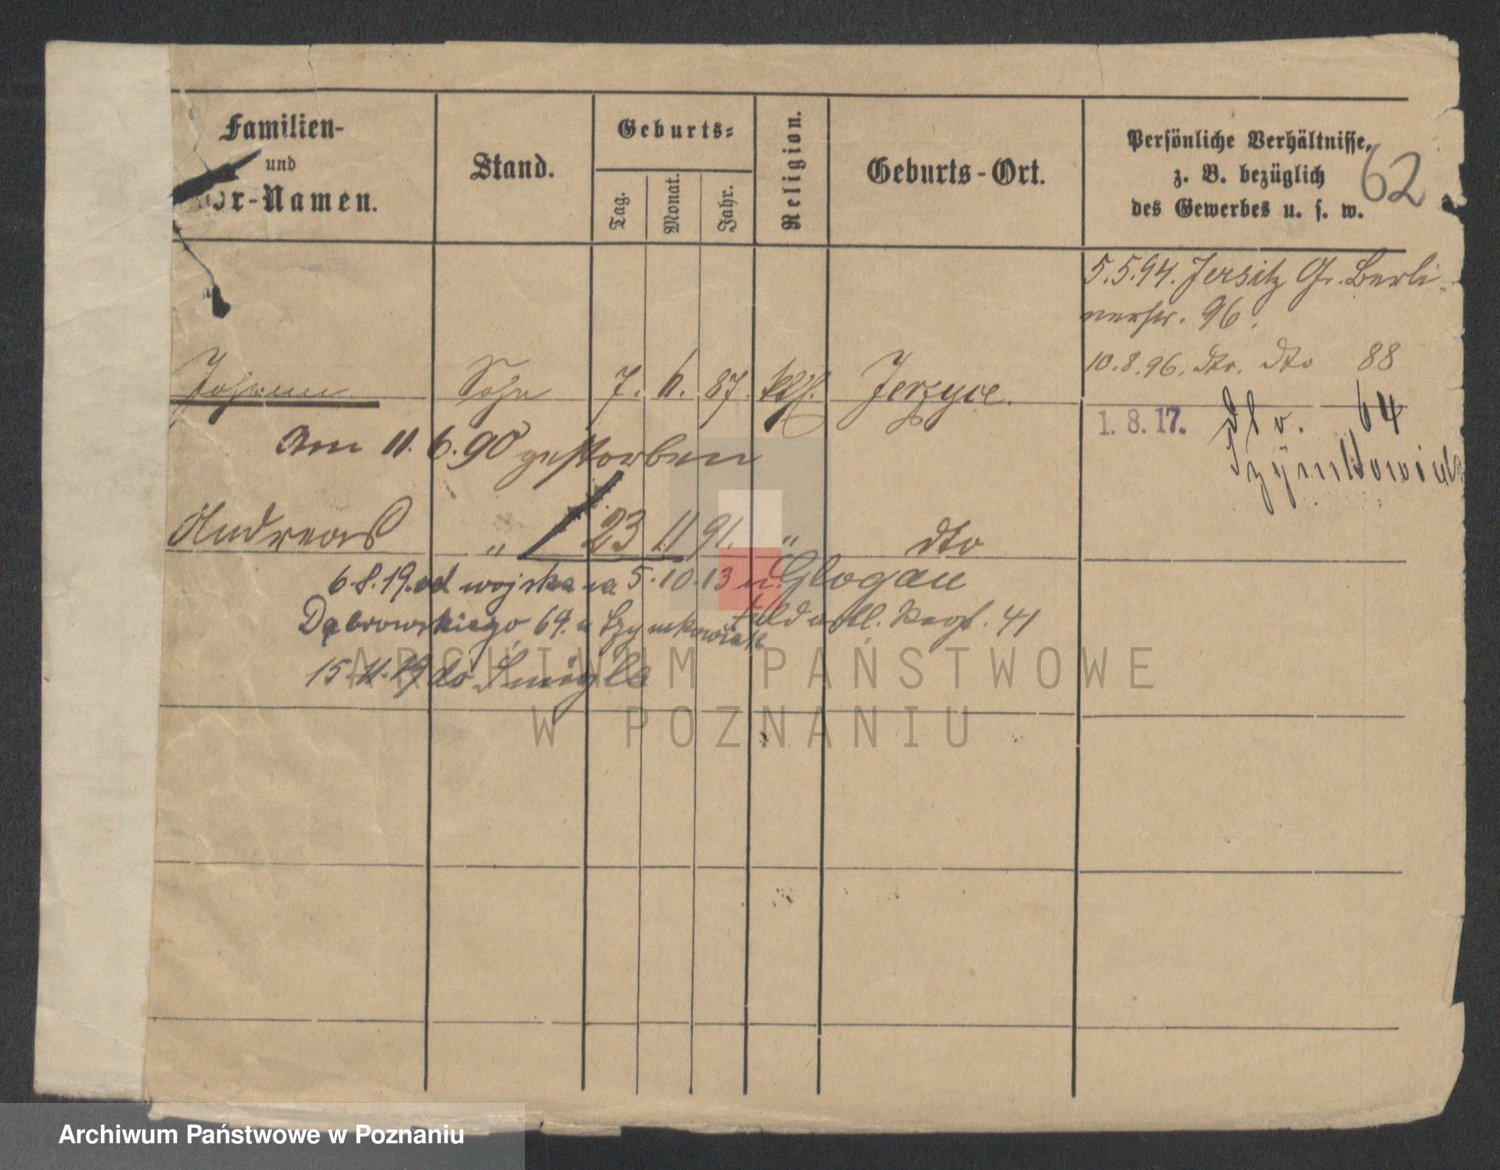 Familien-
und
or-Namen.
Stand.
Geburts-
Tag.
Monat.
Jahr.
Religion.
Geburts-Ort.
Persönliche Verhältnisse,
z. B. bezüglich
des Gewerbes u. s. w.
62
5.5.94. Jersitz Gr. Berli-
nerstr. 96.
10.8.96. dto 88
Johann Sohn 7. 6. 87. kth. Jerzyce.
1.8.17. 64
Am 11.6.90 gestorben
Andreas " 23 11 91. " dto
6.8.19. od wojska na 5.10.13 n. Glogau
Dąbrowskiego 69. u Szymkowiak Feldartl. Regt. 41
15.11.19 do Śmigla
ARCHIWUM PAŃSTWOWE
W POZNANIU
Archiwum Państwowe w Poznaniu